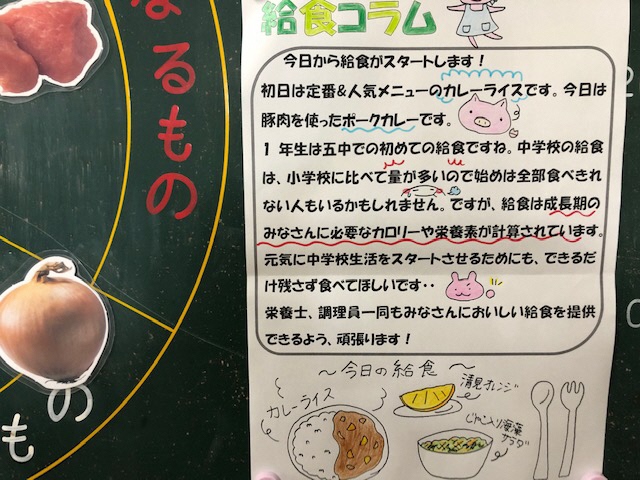 なるもの
のも
給食コラム
今日から給食がスタートします!
初日は定番&人気メニューのカレーライスです。今日は
豚肉を使ったポークカレーです。
1年生は五中での初めての給食ですね。中学校の給食
は、小学校に比べて量が多いので始めは全部食べきれ
ない人もいるかもしれません。ですが、給食は成長期の
みなさんに必要なカロリーや栄養素が計算されています。
元気に中学校生活をスタートさせるためにも、できるだ
け残さず食べてほしいです・・
栄養士、調理員一同もみなさんにおいしい給食を提供
できるよう、頑張ります!
〜今日の給食〜
カレーライス
清見オレンジ
じゃこ入り海藻
サラダ